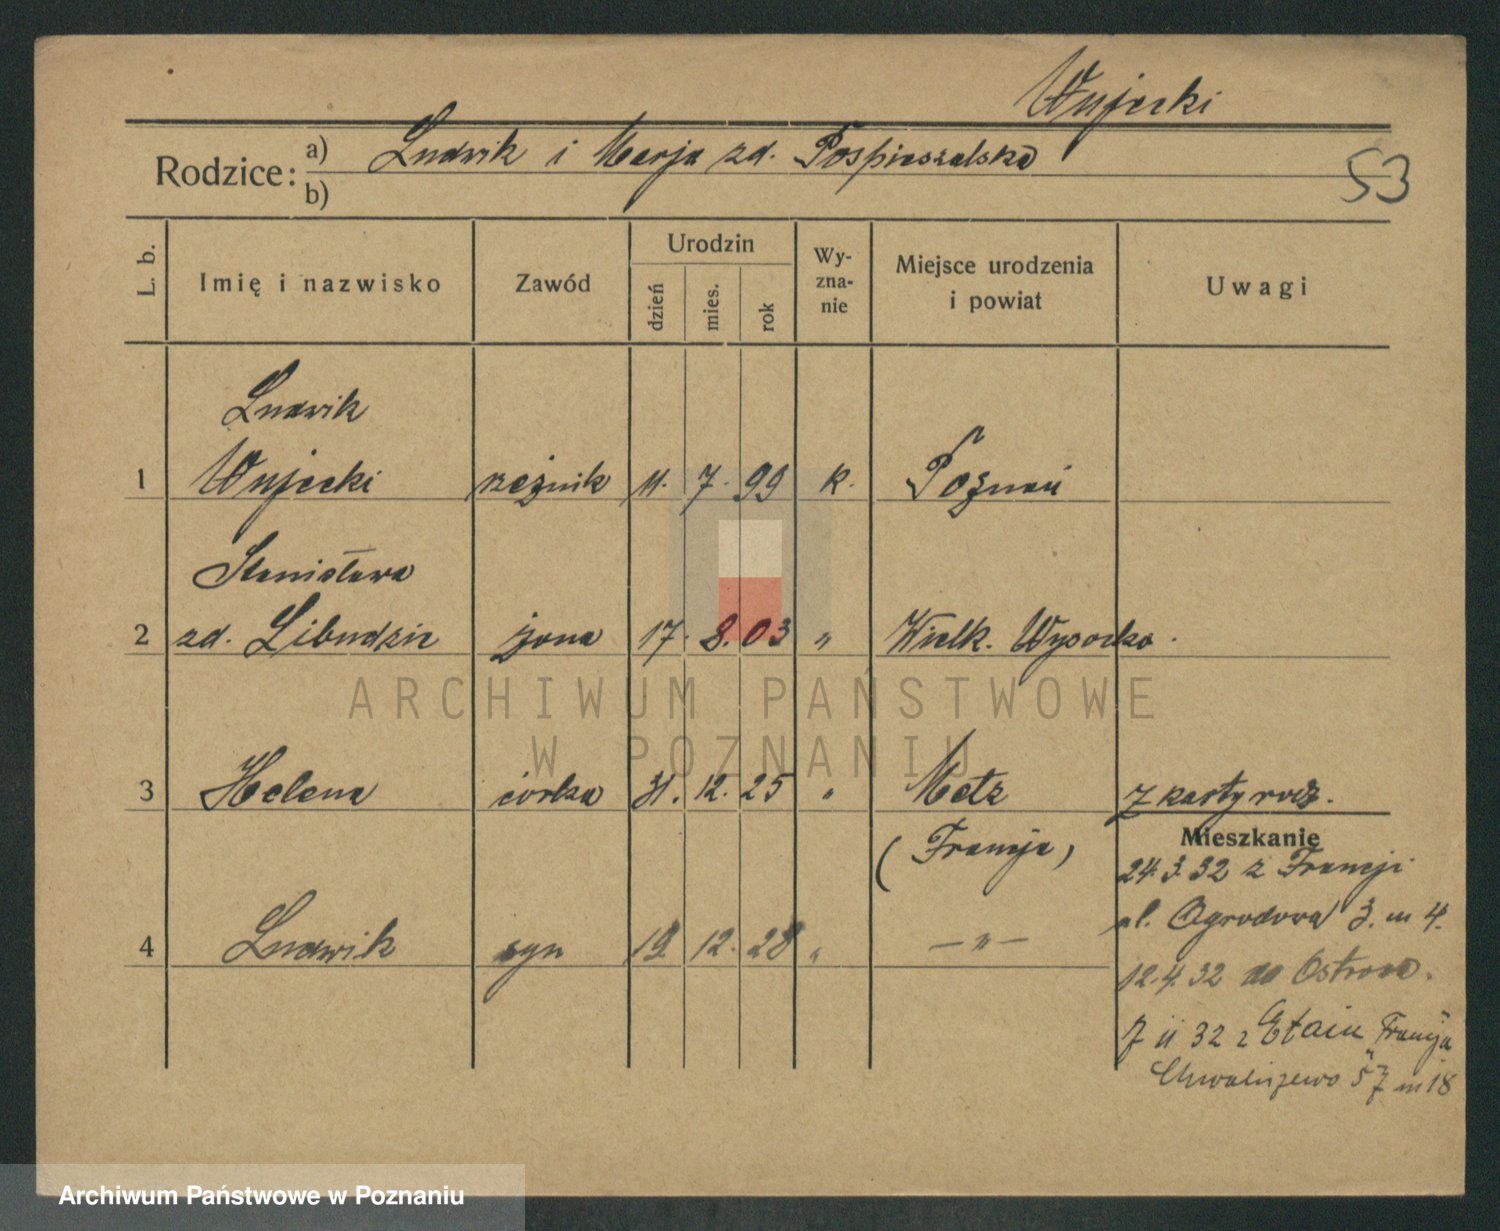 Wujecki
Rodzice: a) Ludwik i Marja zd. Pospieszalska
b)
53
L. b.
Imię i nazwisko
Zawód
Urodzin
dzień
mies.
rok
Wy-
zna-
nie
Miejsce urodzenia
i powiat
Uwagi
Ludwik
1 Wujecki rzeźnik 11. 7. 99 k. Poznań
Stanisława
2 zd. Libudzic żona 17. 8. 03 " Wielk. Wysocko.
ARCHIWUM PAŃSTWOWE
W POZNANIU
3 Helena córka 31. 12. 25 " Metz z karty rodz.
(Francja)
Mieszkanie
24.3.32 z Francji
ul. Ogrodowa 3. m 4.
4 Ludwik syn 19. 12. 28 " — " —
12.4.32 do Ostrowa.
7 11 32 z Etain Francja
Chwaliszewo 57 m 18
Archiwum Państwowe w Poznaniu